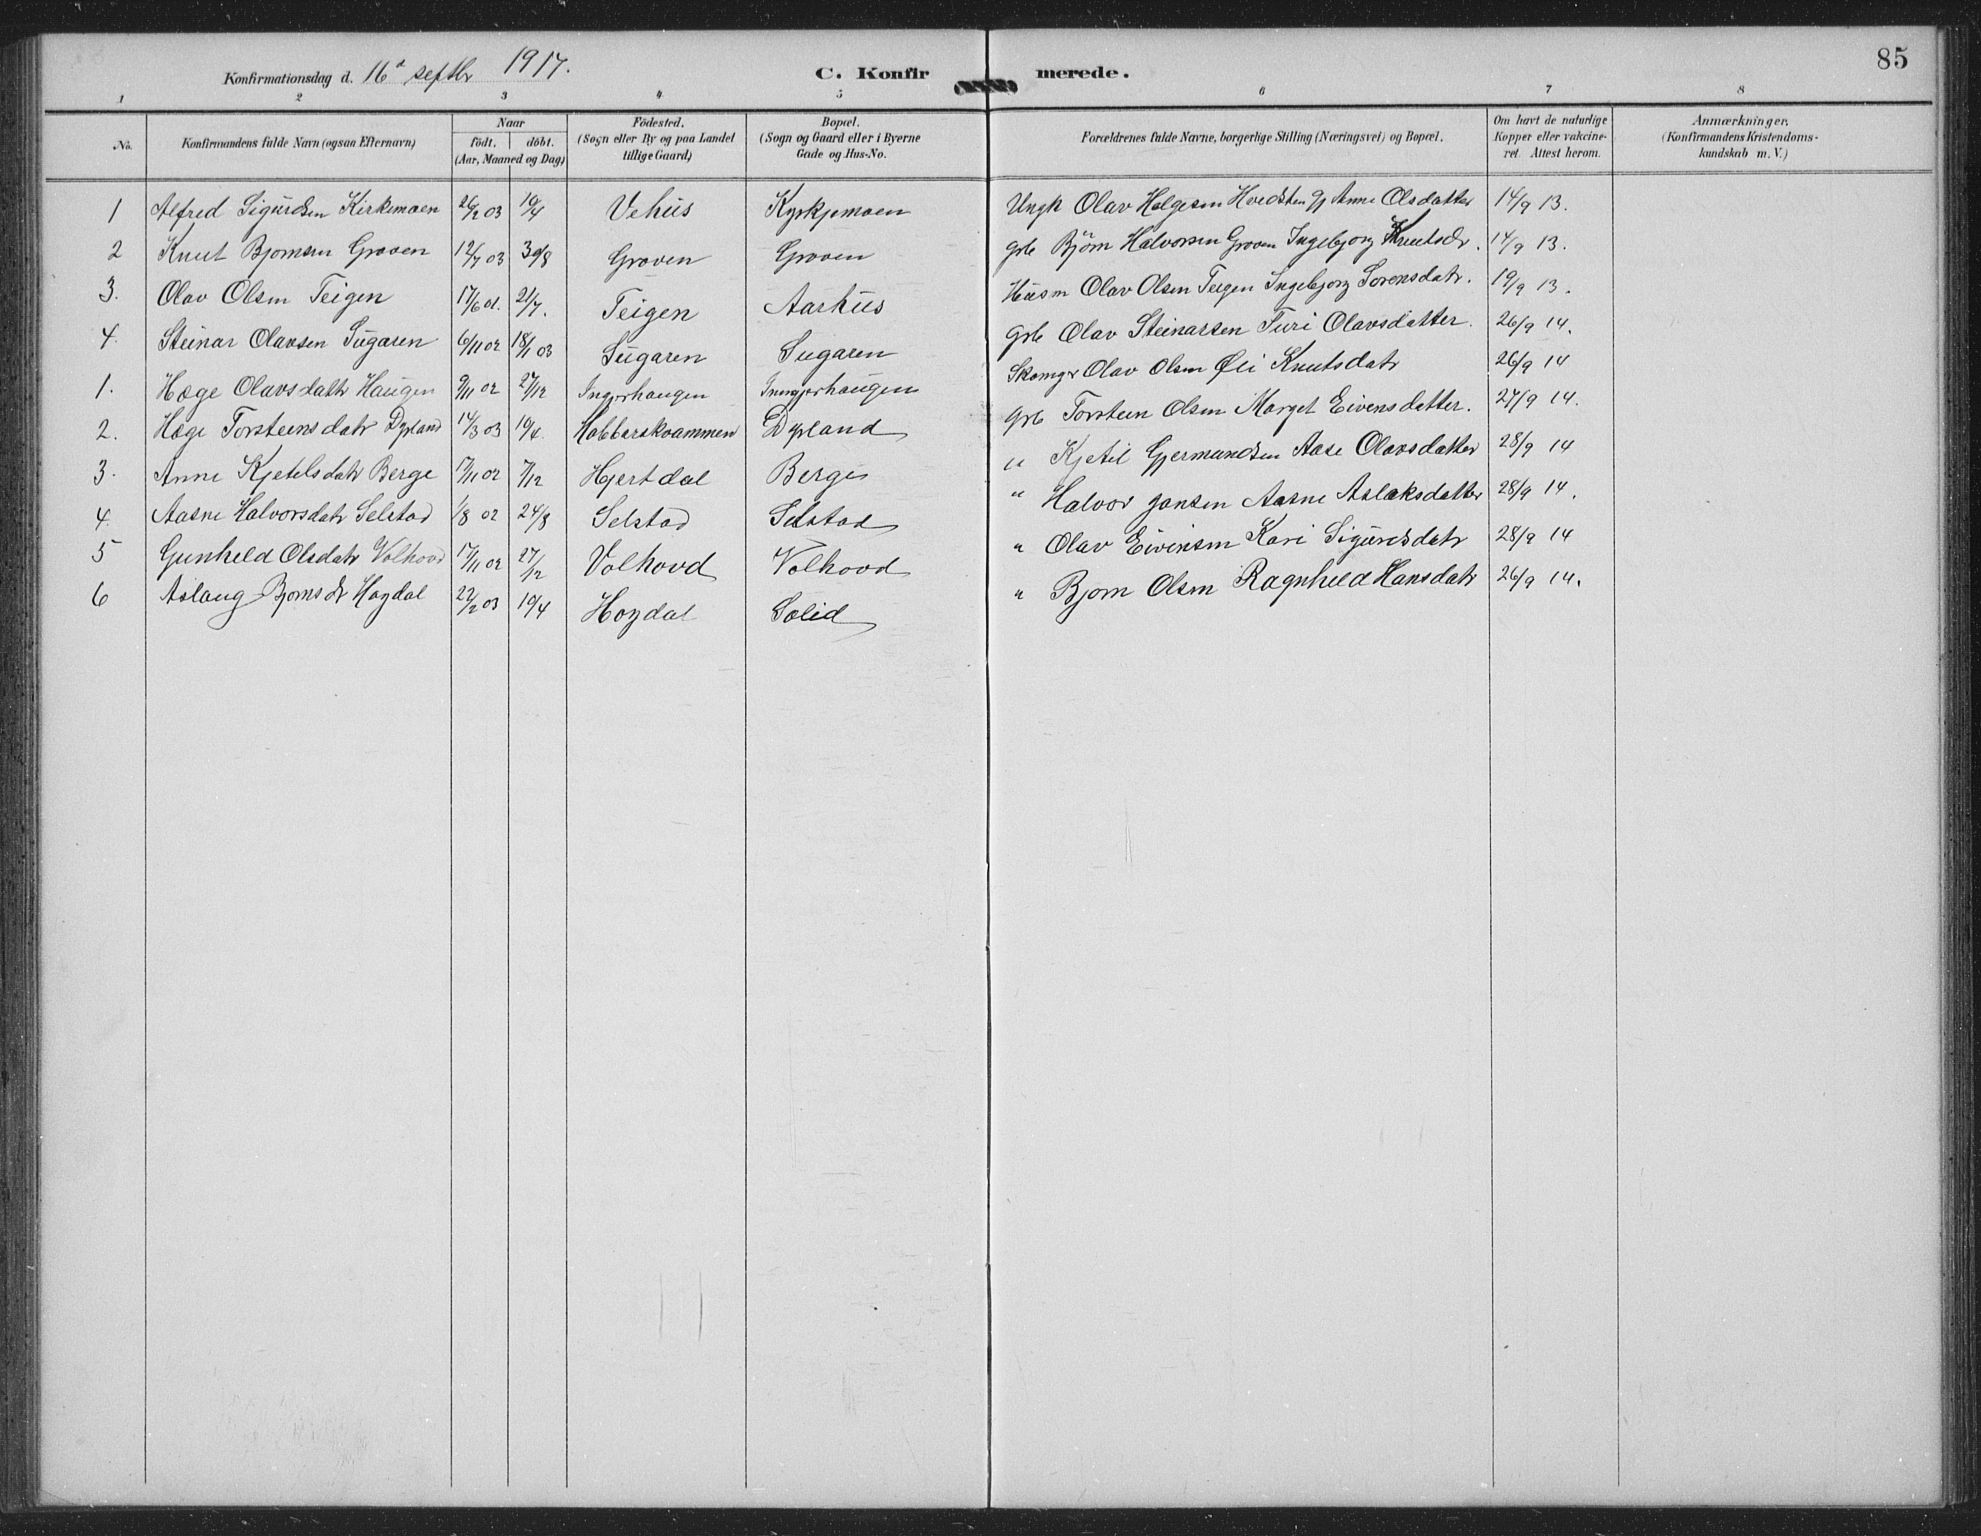 85
Konfirmationsdag d. 16d septbr 1917.
C. Konfirmerede.
1 2 3 4 5 6 7 8
No.
Konfirmandens fulde Navn (ogsaa Efternavn)
Naar
födt. döbt.
(Aar, Maaned og Dag)
Födested.
(Sogn eller By og paa Landet
tillige Gaard)
Bopæl.
(Sogn og Gaard eller i Byerne
Gade og Hus-No.
Forældrenes fulde Navne, borgerlige Stilling (Næringsvei) og Bopæl.
Om havt de naturlige
Kopper eller vakcine-
ret. Attest herom.
Anmærkninger.
(Konfirmandens Kristendoms-
kundskab m. V.)
1 Alfred Sigurdsen Kirkemoen 26/2 03 19/4 Vehus Kyrkjemoen Ungk Olav Helgesen Hvedsten Gp Anne Olsdatter 14/9 13.
2 Knut Bjornsen Groven 12/7 03 30/8 Groven Groven Grb Björn Halvorsen Groven Ingebjorg Knutsdr. 14/9 13.
3. Olav Olsen Teigen 17/6 01. 21/7. Teigen Aarhus Husm Olav Olsen Teigen Ingebjorg Sorensdatr. 19/9 13.
4. Steinar Olavsen Sugaren 6/11 02 18/1 03 Sugaren Sugaren Grb Olav Steinarsen Turi Olavsdatter. 26/9 14.
1. Hæge Olavsdatr Haugen 9/11 02 27/12 Ingjerhaugen Inngjerhaugen Skomgr Olav Olsen Øli Knutsdatr 26/9 14
2. Hæge Torsteensdatr Dyrland 14/3 03 19/4 Habbarskvammen Dyrland Grb Torsteen Olsen Marget Eivensdatter. 27/9 14.
3. Anne Kjetelsdatr Berge 17/11 02 7/12 Hjertdal Berge " Kjetil Gjermundsen Aase Olavsdatter 28/9 14
4. Aasne Halvorsdatr Selstad 1/8 02 24/8 Selstad Selstad " Halvor Jansen Aasne Aslaksdatter 28/9 14.
5 Gunhild Olsdatr Volhovd 17/11 02 27/12 Volhovd Volhovd " Olav Eivinsen Kari Sigurdsdatr 28/9 14
6 Aslaug Bjornsdr Hogdal 22/2 03 19/4 Hogdal Solid " Bjorn Olsen Ragnhild Hansdatr 26/9 14.